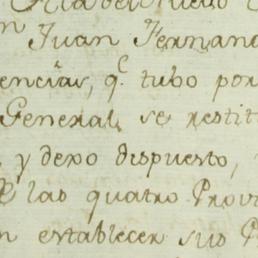 Juan Fernand
encias, q.e tubo por
General, se restit
y dexo dispuesto,
las quatro Provi
n establecer sus P